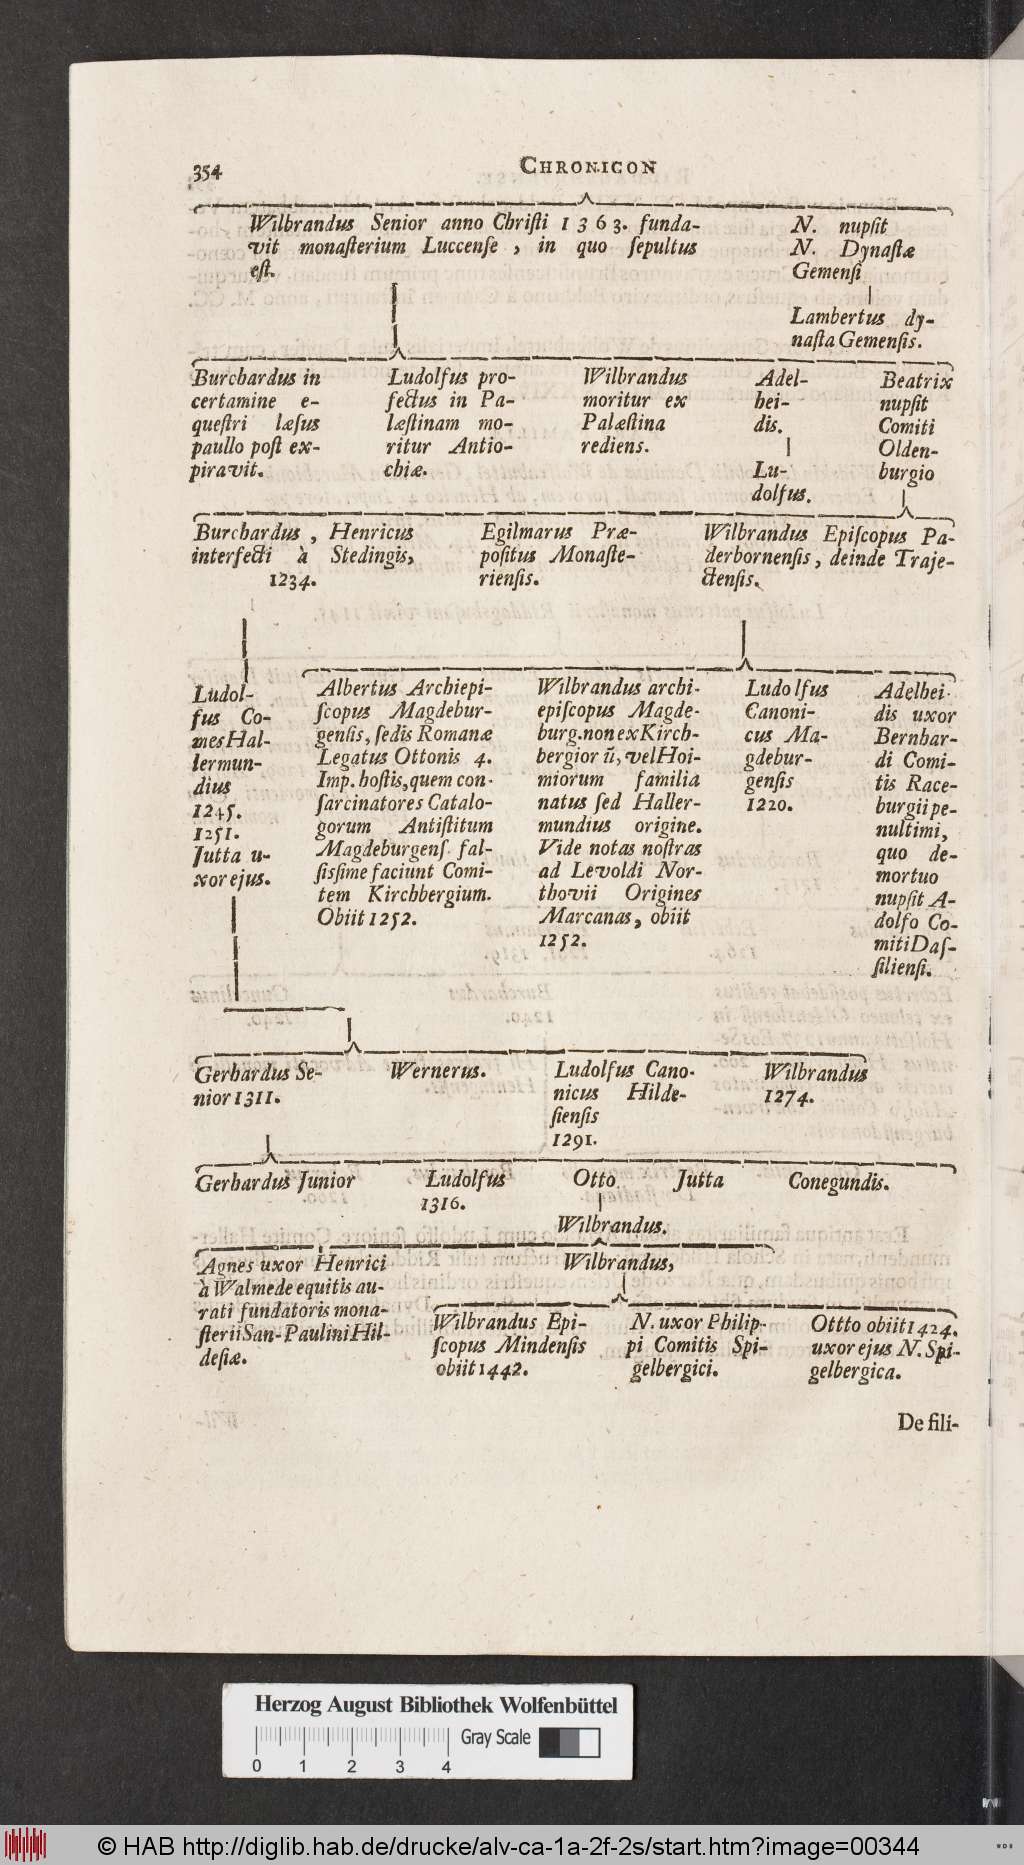 354
CHRONICON
Wilbrandus Senior anno Chriſti 1363. funda-
vit monaſterium Luccenſe, in quo ſepultus
eſt.
N. nupſit
N. Dynaſtæ
Gemenſi
Lambertus dy-
naſta Gemenſis.
Burchardus in
certamine e-
queſtri læſus
paullo poſt ex-
piravit.
Ludolfus pro-
fectus in Pa-
læſtinam mo-
ritur Antio-
chiæ.
Wilbrandus
moritur ex
Palæſtina
rediens.
Adel-
hei-
dis.
Lu-
dolfus.
Beatrix
nupſit
Comiti
Olden-
burgio
Burchardus, Henricus
interfecti à Stedingis,
1234.
Egilmarus Præ-
poſitus Monaſte-
rienſis.
Wilbrandus Epiſcopus Pa-
derbornenſis, deinde Traje-
ctenſis.
Ludol-
fus Co-
mes Hal-
lermun-
dius
1245.
1251.
Jutta u-
xor ejus.
Albertus Archiepi-
ſcopus Magdebur-
genſis, ſedis Romanæ
Legatus Ottonis 4.
Imp. hoſtis, quem con-
ſarcinatores Catalo-
gorum Antiſtitum
Magdeburgenſ. fal-
ſisſime faciunt Comi-
tem Kirchbergium.
Obiit 1252.
Wilbrandus archi-
epiſcopus Magde-
burg. non ex Kirch-
bergior ũ, vel Hoi-
miorum familia
natus ſed Haller-
mundius origine.
Vide notas noſtras
ad Levoldi Nor-
thovii Origines
Marcanas, obiit
1252.
Ludolfus
Canoni-
cus Ma-
gdebur-
genſis
1220.
Adelhei-
dis uxor
Bernhar-
di Comi-
tis Race-
burgii pe-
nultimi,
quo de-
mortuo
nupſit A-
dolfo Co-
miti Daſ-
ſilienſi.
Gerhardus Se-
nior 1311.
Wernerus.
Ludolfus Cano-
nicus Hilde-
ſienſis
1291.
Wilbrandus
1274.
Gerhardus Junior
Ludolfus
1316.
Otto
Jutta
Conegundis.
Wilbrandus.
Agnes uxor Henrici
à Walmede equitis au-
rati fundatoris mona-
ſterii San-Paulini Hil-
deſiæ.
Wilbrandus,
Wilbrandus Epi-
ſcopus Mindenſis
obiit 1442.
N. uxor Philip-
pi Comitis Spi-
gelbergici.
Ottto obiit 1424.
uxor ejus N. Spi-
gelbergica.
De fili-
Herzog August Bibliothek Wolfenbüttel
Gray Scale
0 1 2 3 4
© HAB http://diglib.hab.de/drucke/alv-ca-1a-2f-2s/start.htm?image=00344